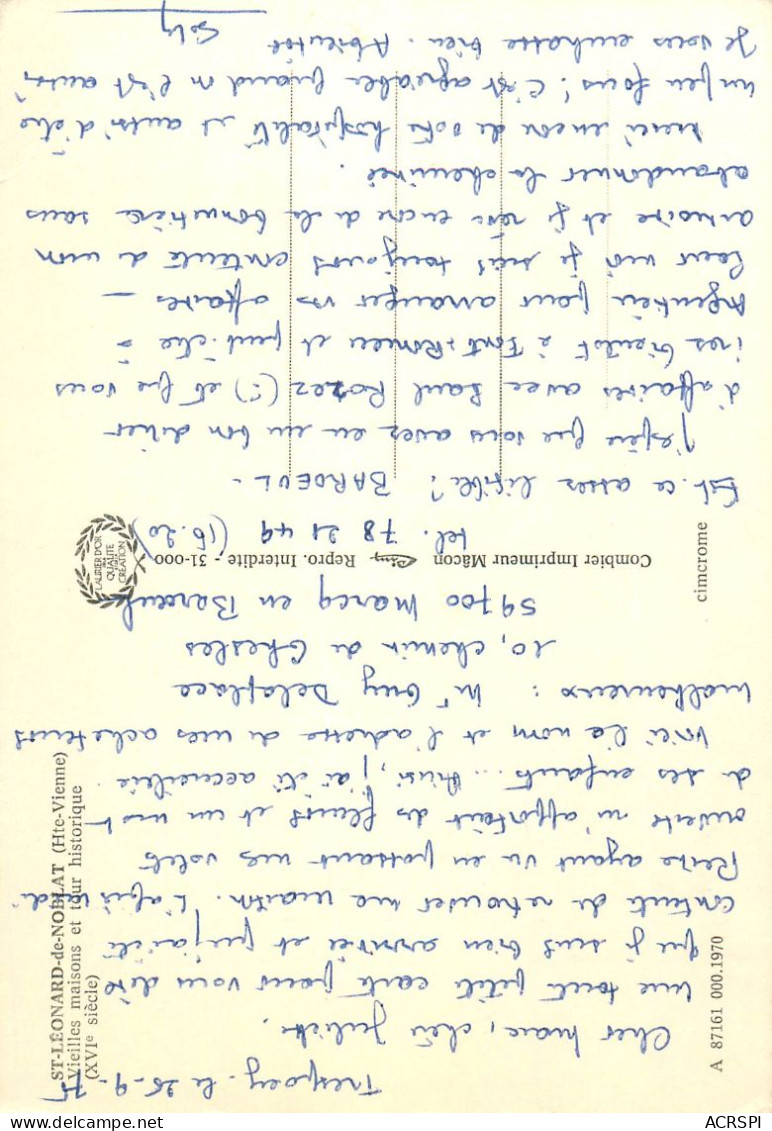 Trespoey. le 25-9-75
Cher Marc, chère Juliette,
une toute petite carte pour vous dire
que je suis bien arrivée et que j'ai été
contente de retrouver ma maison. L'après midi
Reine ayant vu en passant mes volets
ouverts m'apportait des fleurs et un mot
de ses enfants... Ainsi, j'ai été accueillie.
Voici le nom et l'adresse de mes acheteurs
malheureux : Mr Guy Delaplace
10, chemin de Ghesles
59700 Marcq en Baroeul
tel. 78 21 49 (16.20)
Est-ce assez lisible ? BAROEUL -
J'espère que vous avez eu un bon dîner
d'affaires avec Paul Rozez (?) et que vous
irez bientôt à Font-Romeu et peut-être à
Argentière pour arranger vos affaires -
Pour moi je suis toujours contente de mon
armoire et je rêve encore de la bonnetière sans
abandonner la cheminée.
Merci encore de votre hospitalité et aussi d'être
un peu fous ; c'est agréable quand on l'est aussi
Je vous embrasse bien. A bientôt
Soly
ST-LÉONARD-de-NOBLAT (Hte-Vienne)
Vieilles maisons et tour historique
(XVIe siècle)
LAURIER D'OR
QUALITÉ
CRÉATION
Combier Imprimeur Mâcon Cim Repro. Interdite - 31-000
cimcrome
A 87161 000.1970
ACRSPI